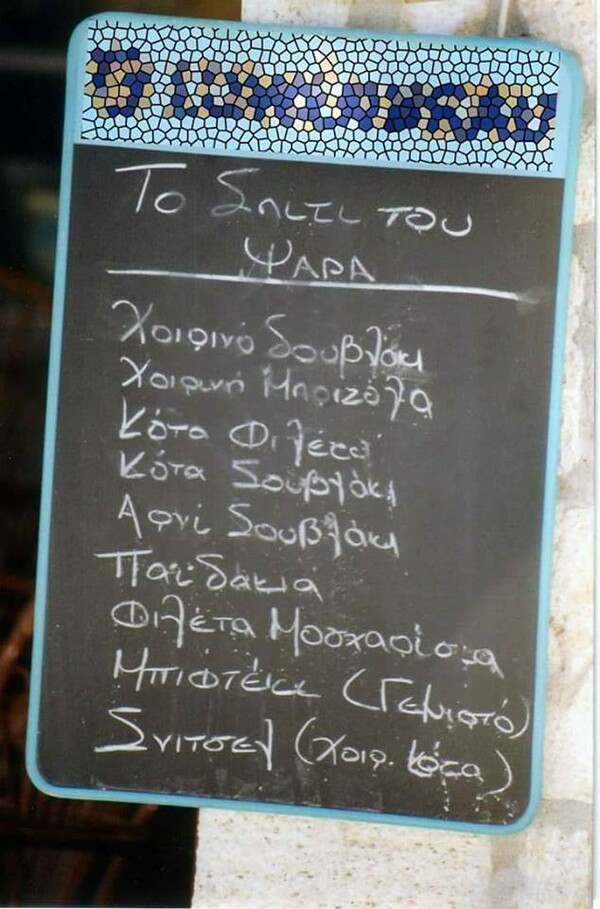 Το Σπιτι του
Ψαρα
Χοιρινό Σουβλάκι
Χοιρινή Μπριζόλα
Κότα Φιλέτο
Κότα Σουβλάκι
Αρνί Σουβλάκι
Παϊδακια
Φιλέτα Μοσχαρίσια
Μπιφτέκι (Γεμιστό)
Σνιτσελ (χοιρ. κότα)